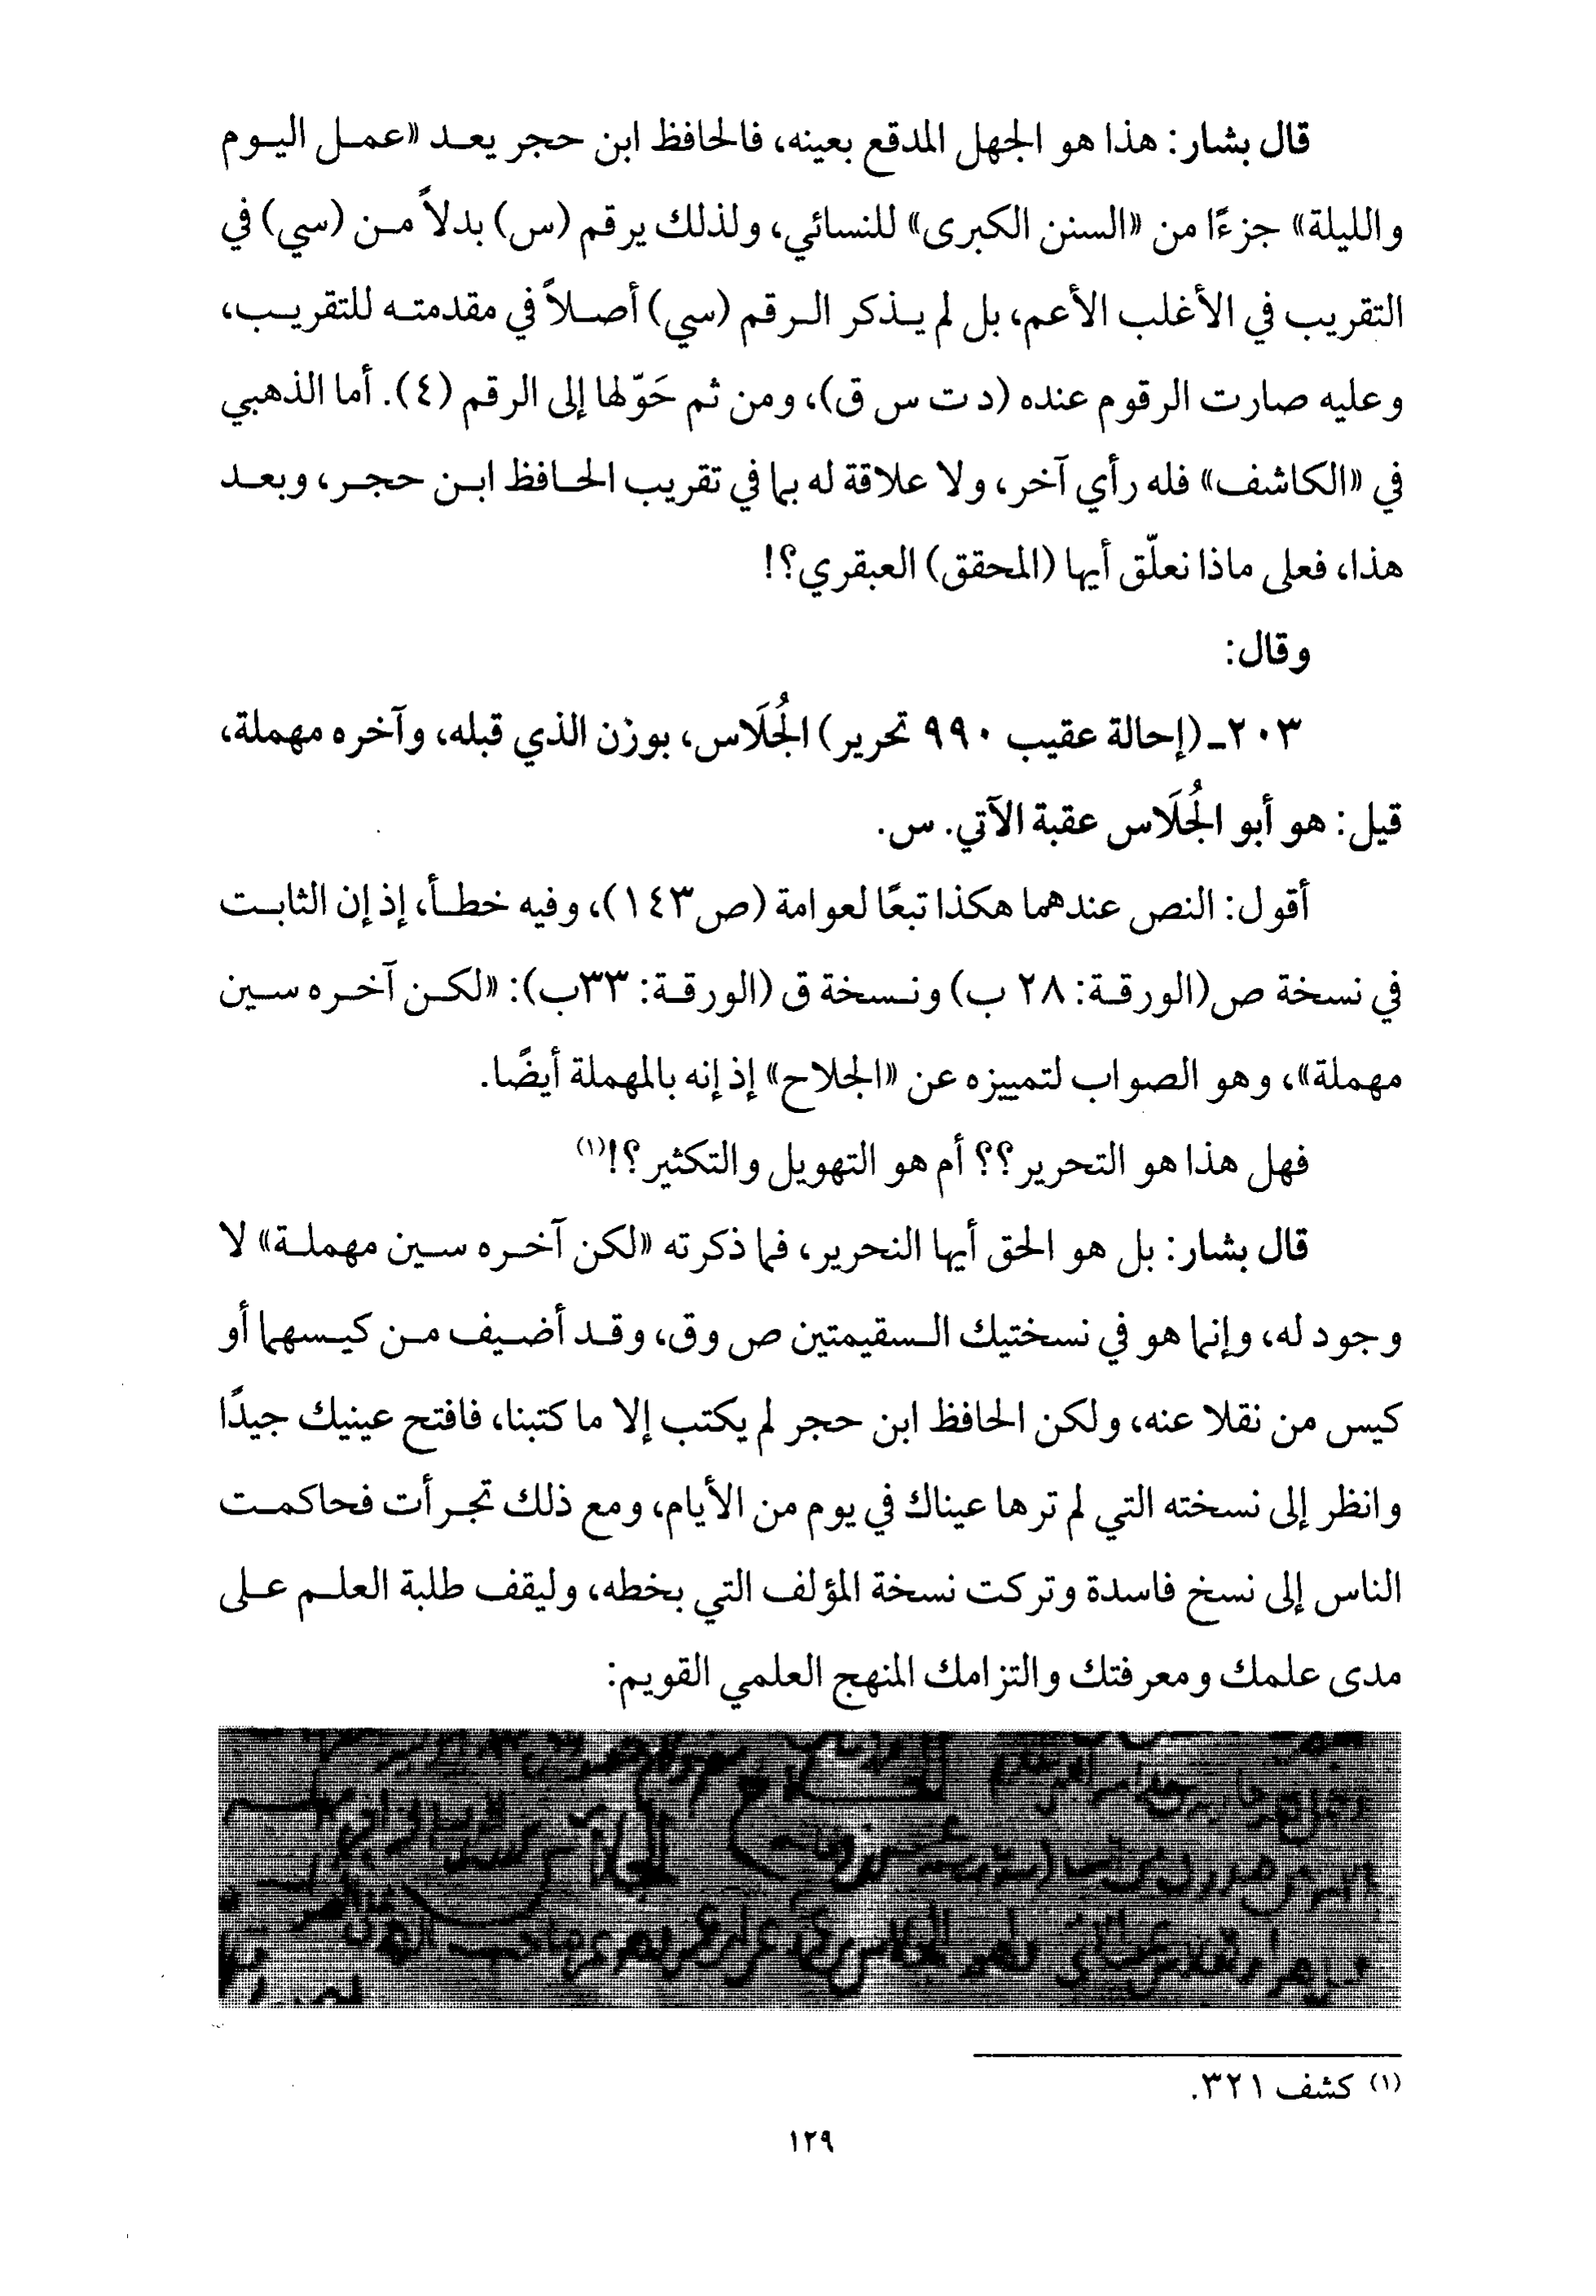 قال بشار: هذا هو الجهل المدقع بعينه، فالحافظ ابن حجر يعد «عمل اليوم
والليلة» جزءًا من «السنن الكبرى» للنسائي، ولذلك يرقم (س) بدلاً من (سي) في
التقريب في الأغلب الأعم، بل لم يذكر الرقم (سي) أصلاً في مقدمته للتقريب،
وعليه صارت الرقوم عنده (د ت س ق)، ومن ثم حَوّلها إلى الرقم (٤). أما الذهبي
في «الكاشف» فله رأي آخر، ولا علاقة له بما في تقريب الحافظ ابن حجر، وبعد
هذا، فعلى ماذا نعلّق أيها (المحقق) العبقري؟!
وقال:
٢٠٣ـ (إحالة عقيب ٩٩٠ تحرير) الجُلَاس، بوزن الذي قبله، وآخره مهملة،
قيل: هو أبو الجُلَاس عقبة الآتي. س.
أقول: النص عندهما هكذا تبعًا لعوامة (ص١٤٣)، وفيه خطأ، إذ إن الثابت
في نسخة ص (الورقة: ٢٨ ب) ونسخة ق (الورقة: ٣٣ب): «لكن آخره سين
مهملة»، وهو الصواب لتمييزه عن «الجلاح» إذ إنه بالمهملة أيضًا.
فهل هذا هو التحرير؟؟ أم هو التهويل والتكثير؟!(١)
قال بشار: بل هو الحق أيها النحرير، فما ذكرته «لكن آخره سين مهملة» لا
وجود له، وإنما هو في نسختيك السقيمتين ص وق، وقد أضيف من كيسهما أو
كيس من نقلا عنه، ولكن الحافظ ابن حجر لم يكتب إلا ما كتبنا، فافتح عينيك جيدًا
وانظر إلى نسخته التي لم ترها عيناك في يوم من الأيام، ومع ذلك تجرأت فحاكمت
الناس إلى نسخ فاسدة وتركت نسخة المؤلف التي بخطه، وليقف طلبة العلم على
مدى علمك ومعرفتك والتزامك المنهج العلمي القويم:
(١) كشف ٣٢١.
١٢٩